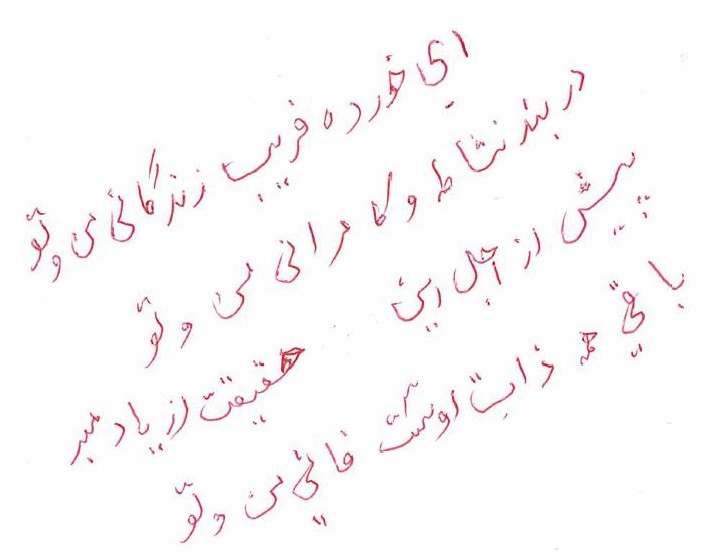 ای خورده فریب زندگانی من و تو
در بند نشاط و کامرانی من و تو
پیش از اجل این حقیقت از یاد مبر
باقی همه ذات اوست فانی من و تو